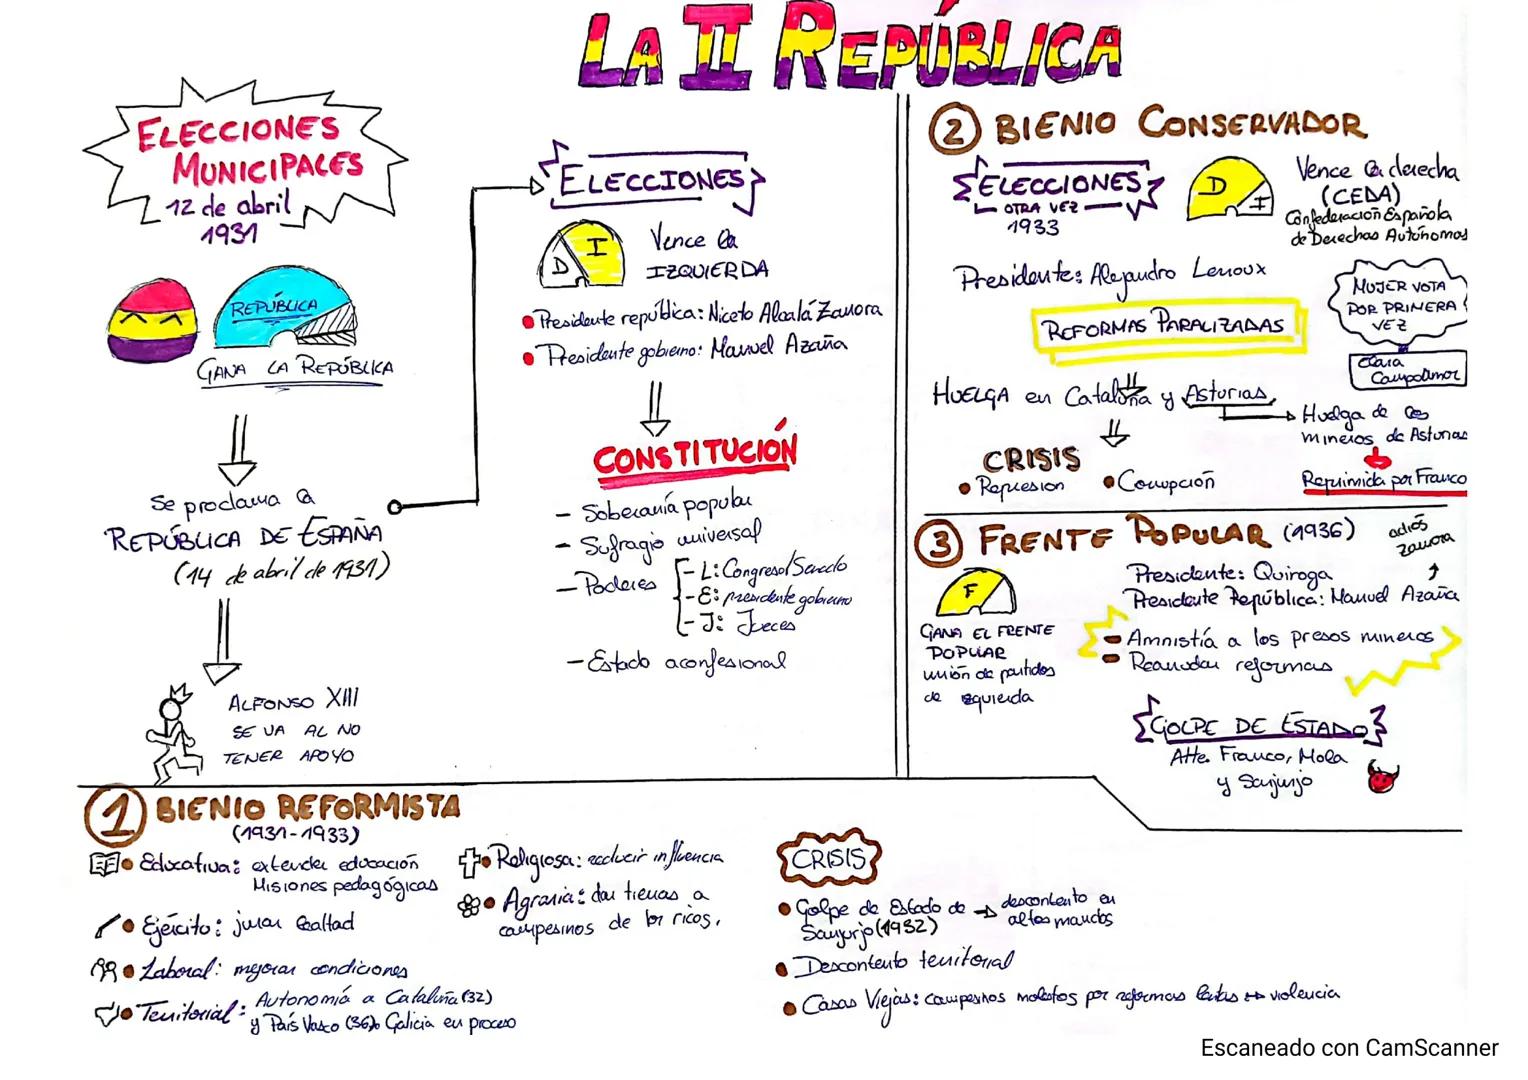 LA II REPÚBLICA
ELECCIONES
MUNICIPALES
12 de abril
1931
REPÚBLICA
GANA LA REPÚBLICA
Se proclama la
REPÚBLICA DE ESPAÑA
(14 de abril de 1931)
ALFONSO XIII
SE VA AL NO
TENER APOYO
ELECCIONES
D I
Vence la
IZQUIERDA
• Presidente república: Niceto Alcalá Zamora
• Presidente gobierno: Manuel Azaña
CONSTITUCIÓN
- Soberanía popular
- Sufragio universal
- Poderes
- L: Congreso/Senado
- E: presidente gobierno
- J: Jueces
- Estado aconfesional
② BIENIO CONSERVADOR
ELECCIONES
OTRA VEZ
1933
D I
Vence la derecha
(CEDA)
Confederación Española
de Derechas Autónomas
Presidente: Alejandro Lerroux
MUJER VOTA
POR PRIMERA
VEZ
Clara
Campoamor
REFORMAS PARALIZADAS
HUELGA en Cataluña y Asturias
Huelga de los
mineros de Asturias
Reprimida por Franco
CRISIS
• Represion
• Corrupción
③ FRENTE POPULAR (1936)
adiós
zamora
F
GANA EL FRENTE
POPULAR
unión de partidos
de izquierda
Presidente: Quiroga
Presidente República: Manuel Azaña
- Amnistía a los presos mineros
- Reanudar reformas
GOLPE DE ESTADO
Atte. Franco, Mola
y Sanjurjo
① BIENIO REFORMISTA
(1931-1933)
• Educativa: extender educación
Misiones pedagógicas
• Ejército: jurar lealtad
• Laboral: mejorar condiciones
• Territorial: Autonomía a Cataluña (32)
y País Vasco (36) Galicia en proceso
• Religiosa: reducir influencia
• Agraria: dar tierras a
campesinos de los ricos.
CRISIS
• Golpe de Estado de → descontento en
Sanjurjo (1932) altos mandos
• Descontento territorial
• Casas Viejas: campesinos molestos por reformas lentas ↔ violencia
Escaneado con CamScanner